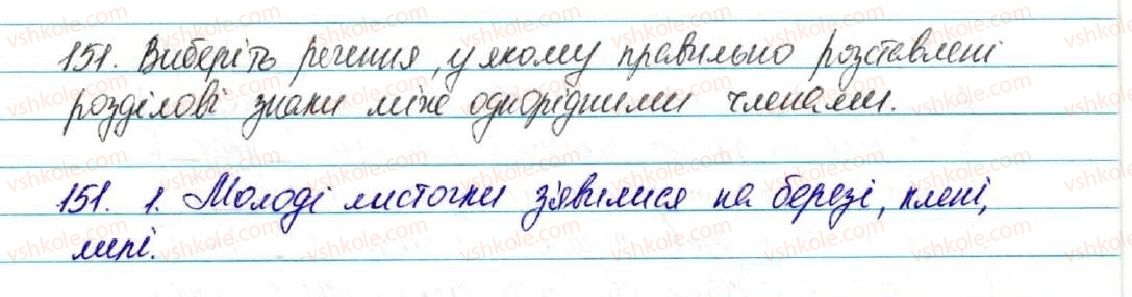 151. Виберіть речення, у якому правильно розставлені
розділові знаки між однорідними членами.
151. 1. Молоді листочки з'явилися на березі, клені,
липі.